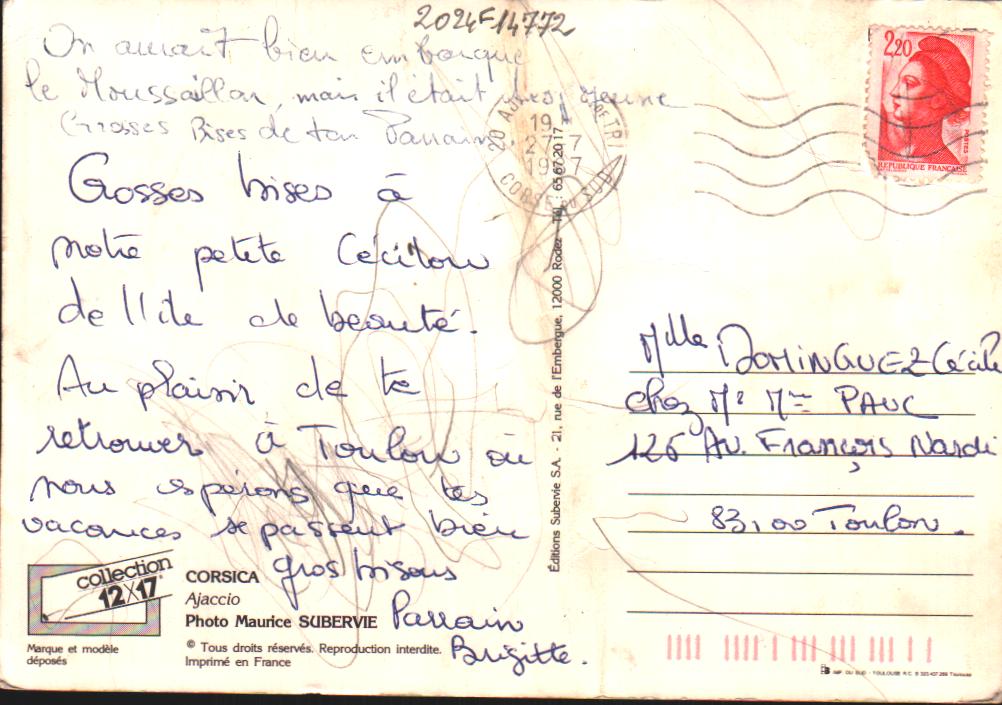 2024F14772
On aurait bien embarqué
le Moussaillon, mais il était très jeune
Grosses Bises de ton Parrain
Grosses bises à
notre petite Cécilou
de l'île de beauté.
Au plaisir de te
retrouver à Toulon où
nous espérons que tes
vacances se passent bien
gros bisous
Parrain
Brigitte.
collection
12X17
Marque et modèle
déposés
CORSICA
Ajaccio
Photo Maurice SUBERVIE
© Tous droits réservés. Reproduction interdite.
Imprimé en France
Éditions Subervie S.A. - 21, rue de l'Embergue, 12000 Rodez - Tél. : 65 67 20 17
19
27 7
1987
CORSE DU SUD
2,20
POSTES
REPUBLIQUE FRANÇAISE
Mlle DOMINGUEZ Cécile
chez Mr Mme PAUC
126 Av. François Nardi
83100 Toulon.
IMP. DU SUD - TOULOUSE R.C. B